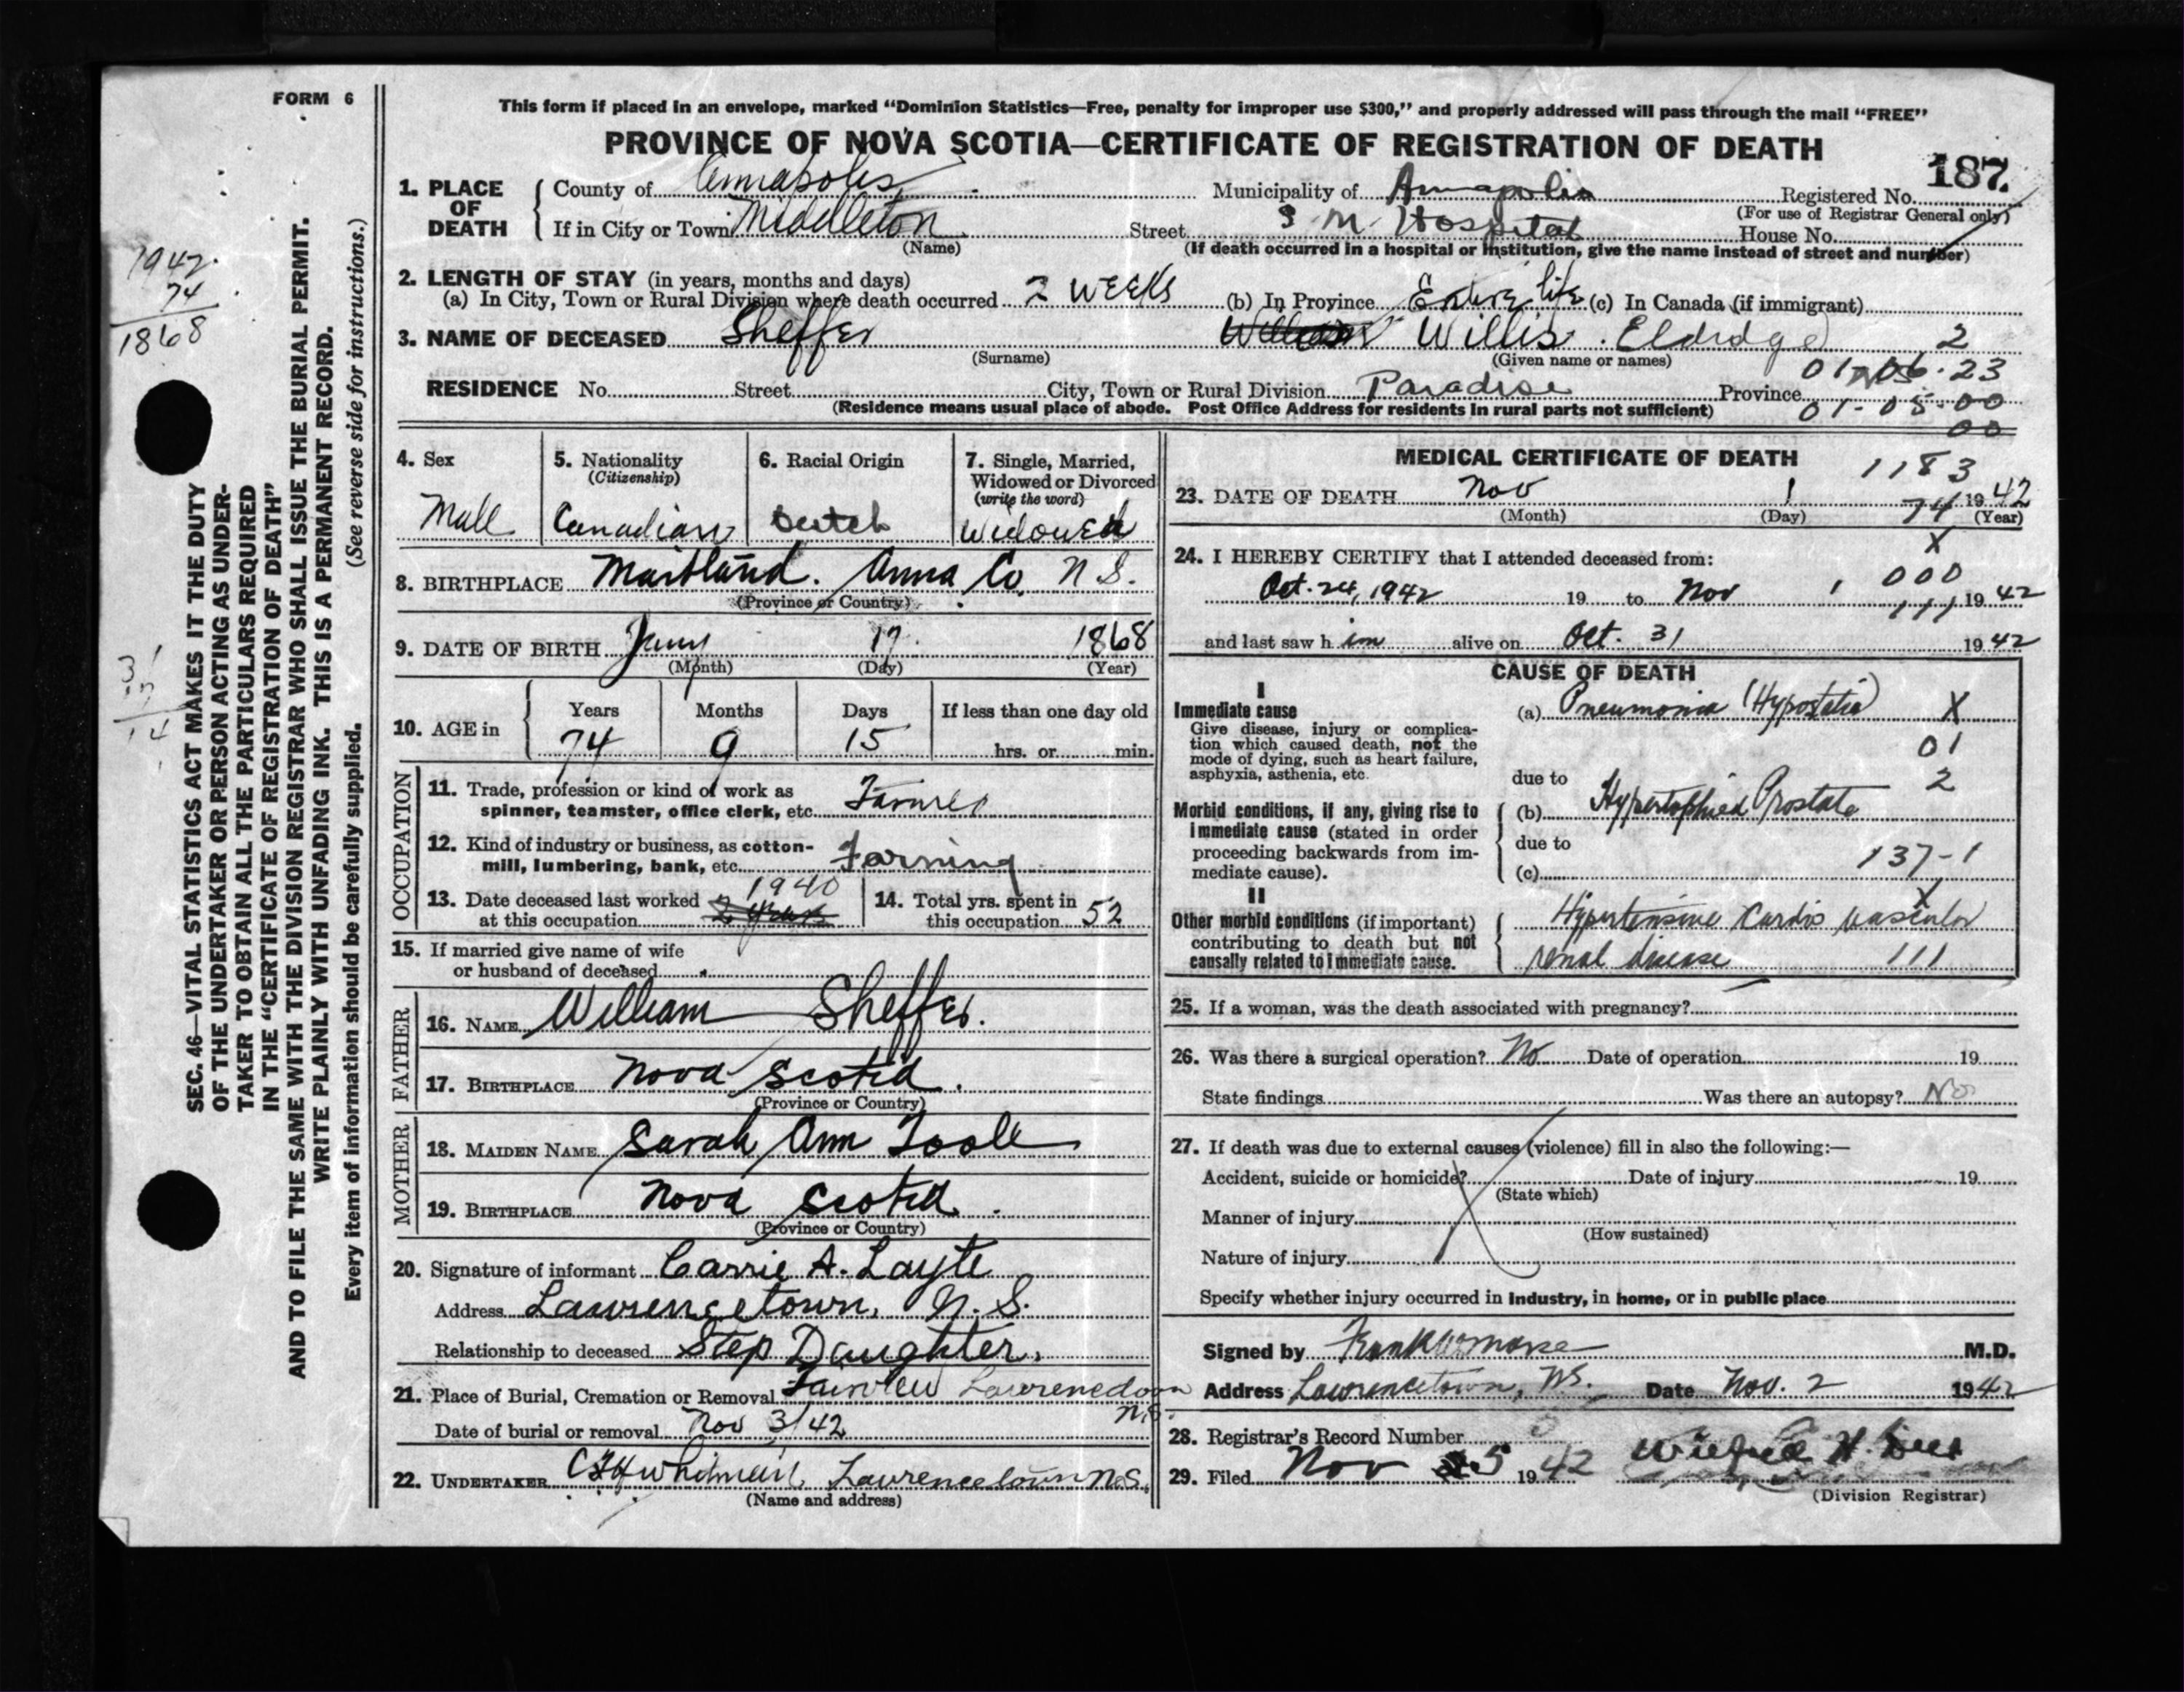 FORM 6
This form if placed in an envelope, marked “Dominion Statistics—Free, penalty for improper use $300,” and properly addressed will pass through the mail “FREE”
PROVINCE OF NOVA SCOTIA—CERTIFICATE OF REGISTRATION OF DEATH
187
1. PLACE OF DEATH County of Annapolis Municipality of Annapolis Registered No.
(For use of Registrar General only)
If in City or Town Middleton Street S M Hospital House No.
(Name) (If death occurred in a hospital or institution, give the name instead of street and number)
2. LENGTH OF STAY (in years, months and days)
(a) In City, Town or Rural Division where death occurred 2 weeks (b) In Province Entire life (c) In Canada (if immigrant)
3. NAME OF DECEASED Sheffer Willis Eldridge 2
(Surname) (Given name or names)
01-06-23
RESIDENCE No. Street City, Town or Rural Division Paradise Province N.S.
01-05-00
(Residence means usual place of abode. Post Office Address for residents in rural parts not sufficient)
00
4. Sex 5. Nationality (Citizenship) 6. Racial Origin 7. Single, Married, Widowed or Divorced (write the word)
Male Canadian Dutch Widowed
8. BIRTHPLACE Maitland. Anna Co. N.S.
(Province or Country)
9. DATE OF BIRTH Jany 17. 1868
(Month) (Day) (Year)
10. AGE in Years Months Days If less than one day old
74 9 15 hrs. or min.
OCCUPATION
11. Trade, profession or kind of work as
spinner, teamster, office clerk, etc. Farmer
12. Kind of industry or business, as cotton-
mill, lumbering, bank, etc. Farming
13. Date deceased last worked at this occupation 1940 2 years
14. Total yrs. spent in this occupation 52
15. If married give name of wife
or husband of deceased
FATHER
16. NAME William Sheffer.
17. BIRTHPLACE Nova Scotia.
(Province or Country)
MOTHER
18. MAIDEN NAME Sarah Ann Toole
19. BIRTHPLACE Nova Scotia.
(Province or Country)
20. Signature of informant Carrie A. Layte
Address Lawrencetown, N.S.
Relationship to deceased Step Daughter.
21. Place of Burial, Cremation or Removal Fairview Lawrencetown
N.S.
Date of burial or removal Nov 3/42
22. UNDERTAKER Whitman Lawrencetown N.S.
(Name and address)
MEDICAL CERTIFICATE OF DEATH
1183
23. DATE OF DEATH Nov 1 1942
(Month) (Day) 74 (Year)
X
24. I HEREBY CERTIFY that I attended deceased from:
000
Oct. 24, 1942 19 to Nov 1 1942
111
and last saw h im alive on Oct. 31 1942
CAUSE OF DEATH
I
Immediate cause (a) Pneumonia (Hypostatic) X
Give disease, injury or complica-
tion which caused death, not the 01
mode of dying, such as heart failure,
asphyxia, asthenia, etc. due to 2
Morbid conditions, if any, giving rise to (b) Hypertrophied Prostate
immediate cause (stated in order
proceeding backwards from im- due to
mediate cause). (c) 137-1
II X
Other morbid conditions (if important) Hypertensive Cardio vascular
contributing to death but not
causally related to immediate cause. renal disease 111
25. If a woman, was the death associated with pregnancy?
26. Was there a surgical operation? No Date of operation 19
State findings Was there an autopsy? No
27. If death was due to external causes (violence) fill in also the following:—
Accident, suicide or homicide? Date of injury 19
(State which)
Manner of injury
(How sustained)
Nature of injury
Specify whether injury occurred in industry, in home, or in public place
Signed by Frank Morse M.D.
Address Lawrencetown, N.S. Date Nov. 2 1942
28. Registrar's Record Number
29. Filed Nov 5 1942
(Division Registrar)
SEC. 46—VITAL STATISTICS ACT MAKES IT THE DUTY
OF THE UNDERTAKER OR PERSON ACTING AS UNDER-
TAKER TO OBTAIN ALL THE PARTICULARS REQUIRED
IN THE “CERTIFICATE OF REGISTRATION OF DEATH”
AND TO FILE THE SAME WITH THE DIVISION REGISTRAR WHO SHALL ISSUE THE BURIAL PERMIT.
WRITE PLAINLY WITH UNFADING INK. THIS IS A PERMANENT RECORD.
Every item of information should be carefully supplied. (See reverse side for instructions.)
1942
74
1868
31
17
14